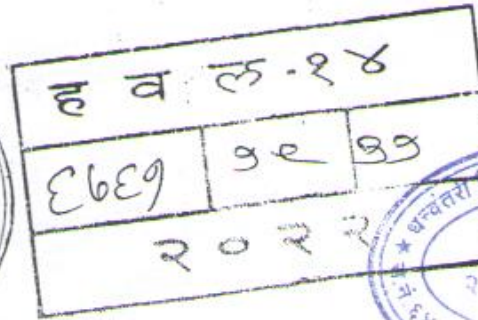 ह व ल.-१४
६७६१ ३९ ३१
२०२२
धन्वंतरी